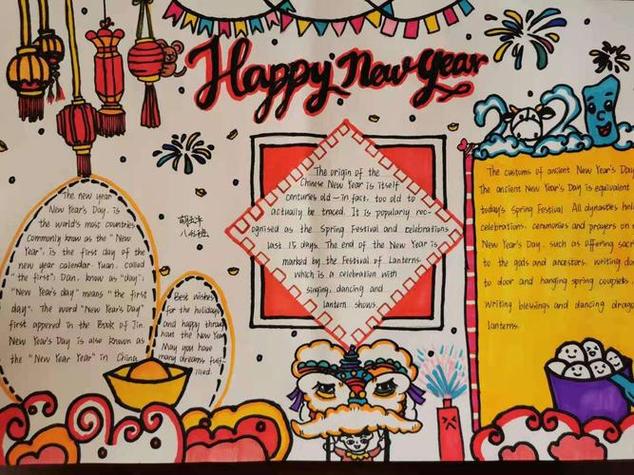 Happy New Year
2021
The new year
New Year's Day, is
the world's most countries
commonly know as the "New
Year", is the first day of the
new year calendar Yuan, called
"the first"; Dan, know as "day";
"New Year's day" means "the first
day". The word "New Year's Day"
first appered in the Book of Jin
New Year's Day is also known as
the "New Year Year" in China
Best wishes
for the holidays
and happy throu
hout the New Year
May you have
many dreams fulf
illed.
八
班
The origin of the
Chinese New Year is itself
centuries old — in fact, too old to
actually be traced. It is popularly rec-
ognised as the Spring Festival and celebrations
last 15 days. The end of the New Year is
marked by the Festival of Lanterns,
which is a celebration with
singing, dancing and
lantern shows.
The customs of ancient New Year's Day
The ancient New Year's Day is equivalent
today's Spring Festival. All dynasties hel
celebrations, ceremonies and prayers on
New Year's Day, such as offering sacr
to the gods and ancestors, writing do
to door and hanging spring couplets
writing blessings and dancing drago
lanterns.